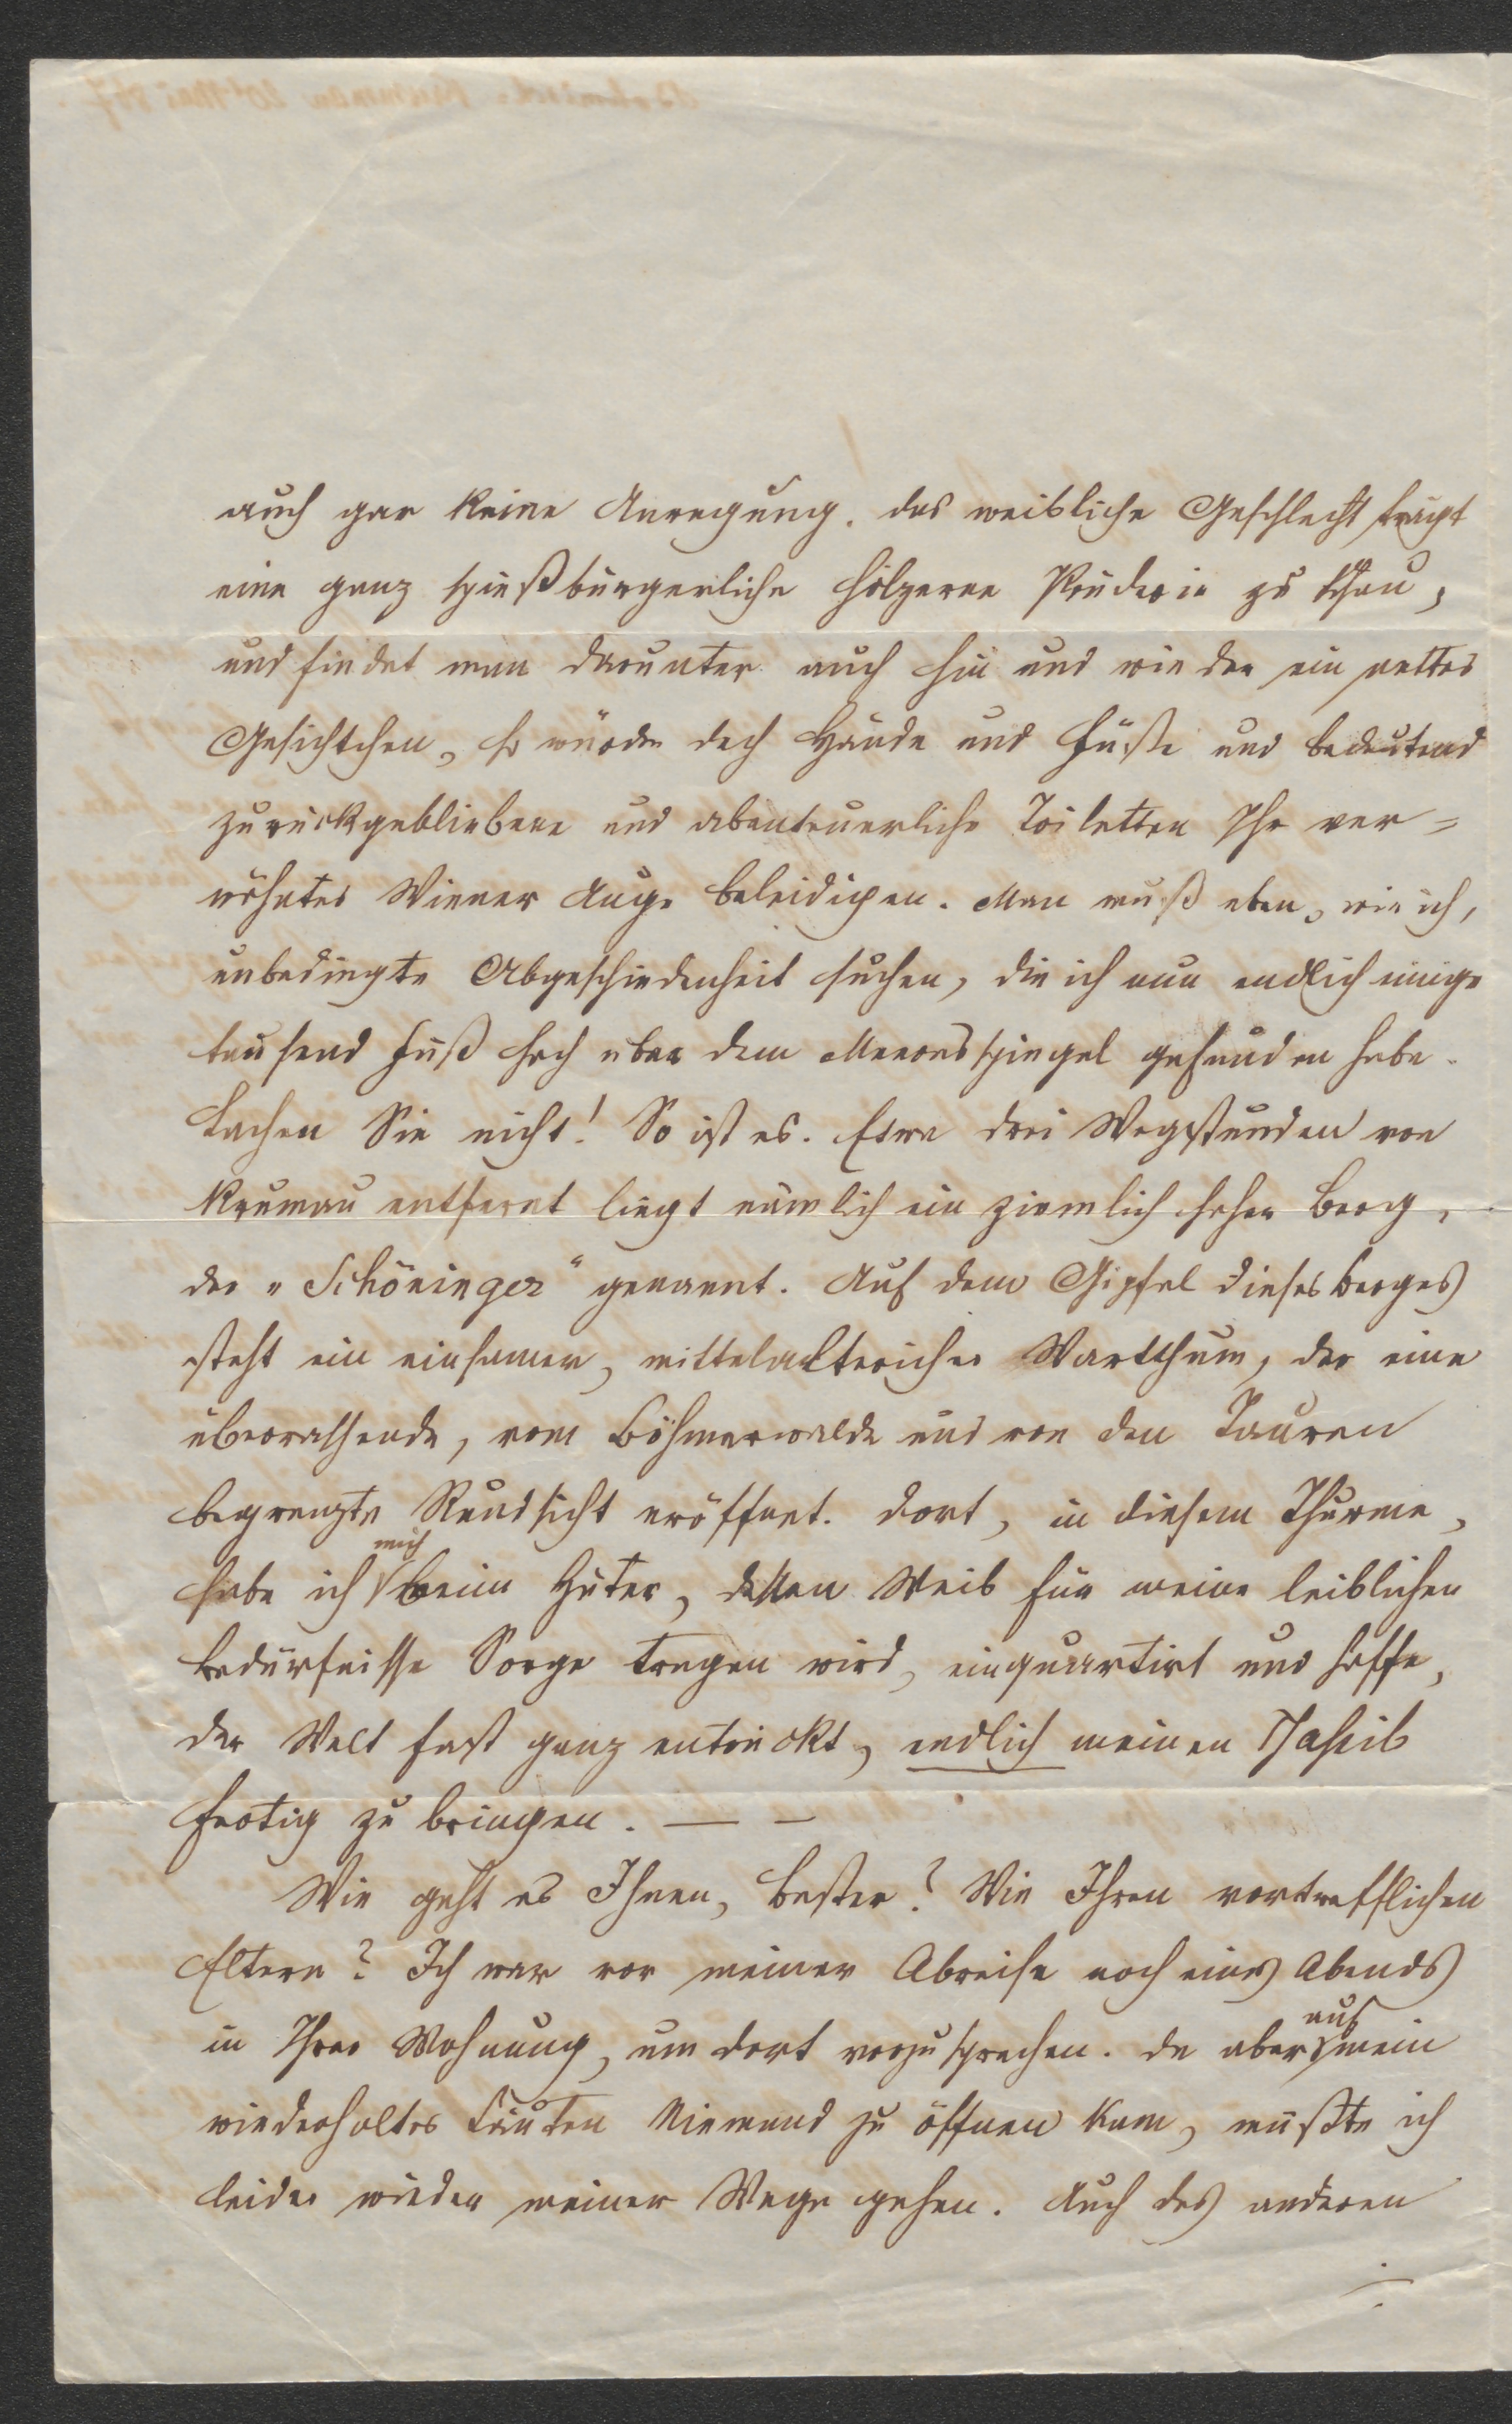 auch gar keine Anregung. das weibliche Geschlecht trägt
eine ganz spießbürgerliche hölzerne Prüderie zu Schau,
und findet man darunter auch hin und wieder ein nettes
Gesichtchen, so würden doch Hände und Füße und bedeutend
zurückgebliebene und abenteuerliche Toiletten Ihr ver=
wöhntes Wiener Auge beleidigen. Man muß eben, wie ich,
unbedingte Abgeschiedenheit suchen, die ich nun endlich einige
tausend Fuß hoch über dem Meeresspiegel gefunden habe.
Lachen Sie nicht! So ist es. Etwa drei Wegstunden von
Krumau entfernt liegt nämlich ein ziemlich hoher Berg,
der „Schöninger“ genannt. Auf dem Gipfel dieses Berges
steht ein einsamer, mittelaltericher Wartthurm, der eine
überraschende, vom Böhmerwalde und von den Tauren
begrenzte Rundsicht eröffnet. Dort, in diesem Thurme,
mich
habe ich beim Hüter, dessen Weib für meine leiblichen
Bedürfnisse Sorge tragen wird, einquartirt und hoffe,
der Welt fast ganz entrückt, endlich meinen
fertig zu bringen. — —
Wie geht es Ihnen, Bester? Wie Ihren vortrefflichen
Eltern? Ich war vor meiner Abreise noch eines Abends
auf
in Ihrer Wohnung, um dort vorzusprechen. Da aber mein
wiederholtes Läuten Niemand zu öffnen kam, mußte ich
leider wieder meiner Wege gehen. Auch des anderen